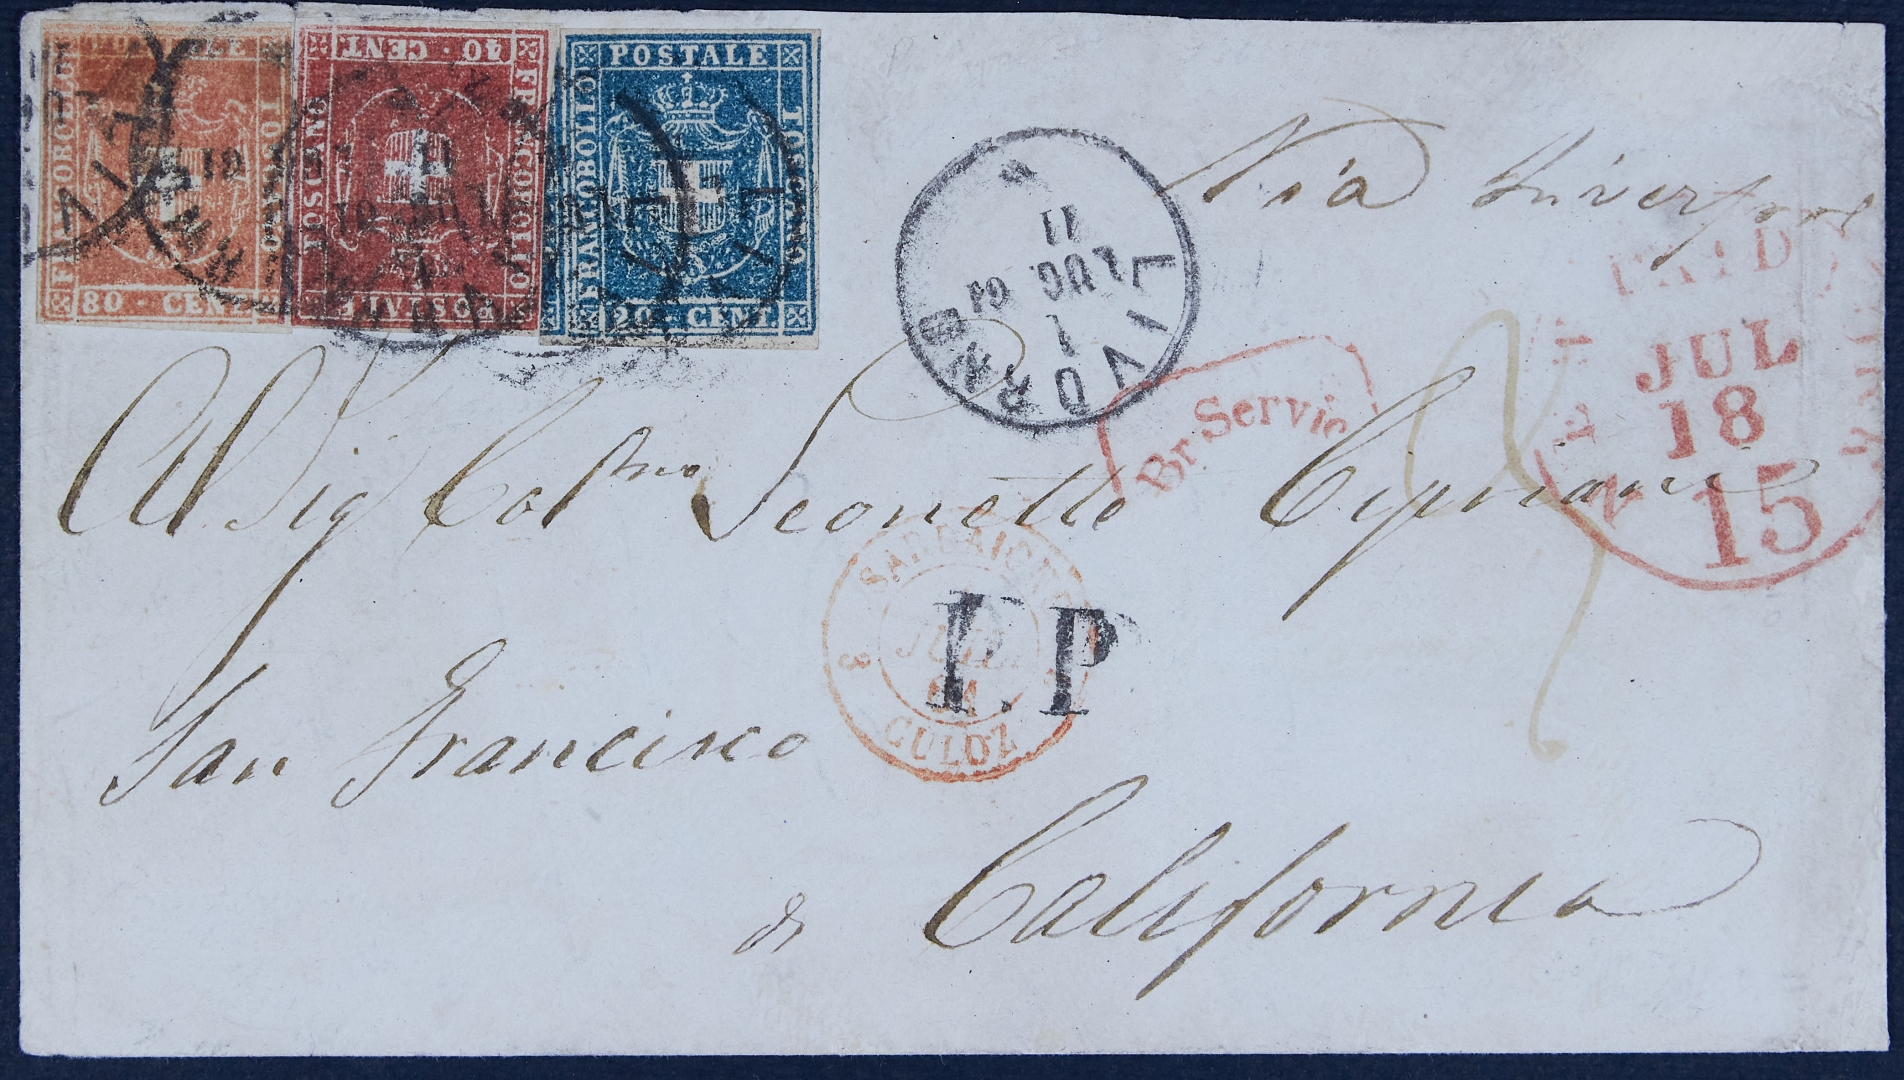 FRANCOBOLLO
80 · CENT
40 · CENT
FRANCOBOLLO
TOSCANO
POSTALE
FRANCOBOLLO
TOSCANO
20 · CENT
LIVORNO
1
LUG 61
11
Via Liverpool
PAID
JUL
18
15
Br. Servic
Al Sig Col Leonetto Cipriani
SARDAIGNE
8
61
CULOZ
P.P
San Francisco
di California